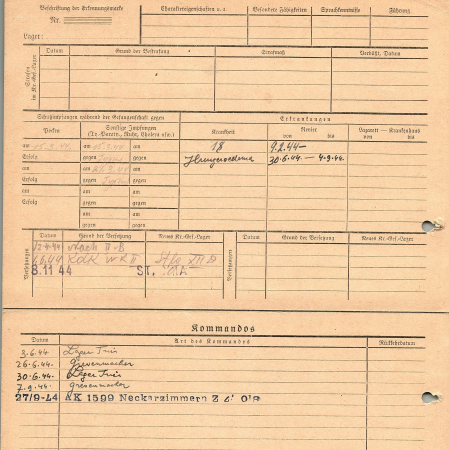 Beschriftung der Erkennungsmarke
Nr.
Lager:
Charaktereigenschaften u. ä.
Besondere Fähigkeiten
Sprachkenntnisse
Führung
Strafen im Kr.-Gef.-Lager
Datum Grund der Bestrafung Strafmaß Verbüßt, Datum
Schutzimpfungen während der Gefangenschaft gegen
Erkrankungen
Pocken
Sonstige Impfungen
(Ty.-Paraty., Ruhr, Cholera usw.)
Krankheit
Revier
von bis
Lazarett — Krankenhaus
von bis
am 15.3.44 am 15.3.44 am
Erfolg gegen gegen
am am am
Erfolg gegen gegen
am am am
Erfolg gegen gegen
am am am
Erfolg gegen gegen
18 9.2.44-
Hungeroedema 30.6.44 - 4.9.44.
Versetzungen
Datum Grund der Versetzung Neues Kr.-Gef.-Lager
Datum Grund der Versetzung Neues Kr.-Gef.-Lager
nach II-B
8.11 44 ST.
Kommandos
Datum Art des Kommandos Rückkehrdatum
3.6.44. Lager Trier
26.6.44. Grevenmacher
30.6.44. Lager Trier
7.9.44. Grevenmacher
27/9-44 AK 1599 Neckarzimmern